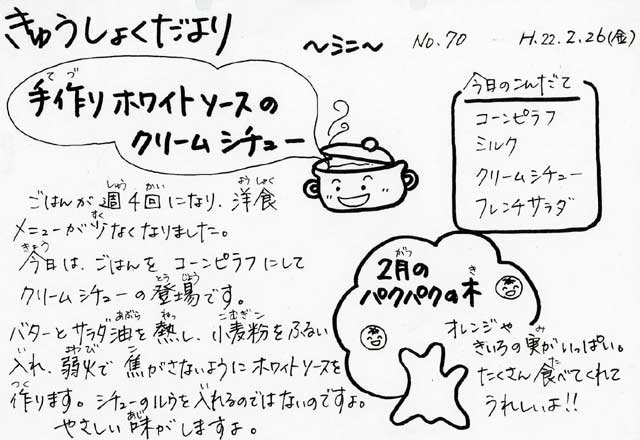 きゅうしょくだより
～ミニ～
No.70
H.22.2.26(金)
手作りホワイトソースの
クリームシチュー
今日のこんだて
コーンピラフ
ミルク
クリームシチュー
フレンチサラダ
ごはんが週4回になり、洋食
メニューが少なくなりました。
今日は、ごはんを コーンピラフにして
クリームシチューの登場です。
バターとサラダ油を熱し、小麦粉をふるい
入れ、弱火で 焦がさないようにホワイトソースを
作ります。シチューのルウを入れるのではないのですよ。
やさしい味がしますよ。
2月の
パクパクの木
オレンジや
きいろの実がいっぱい。
たくさん食べてくれて
うれしいよ!!